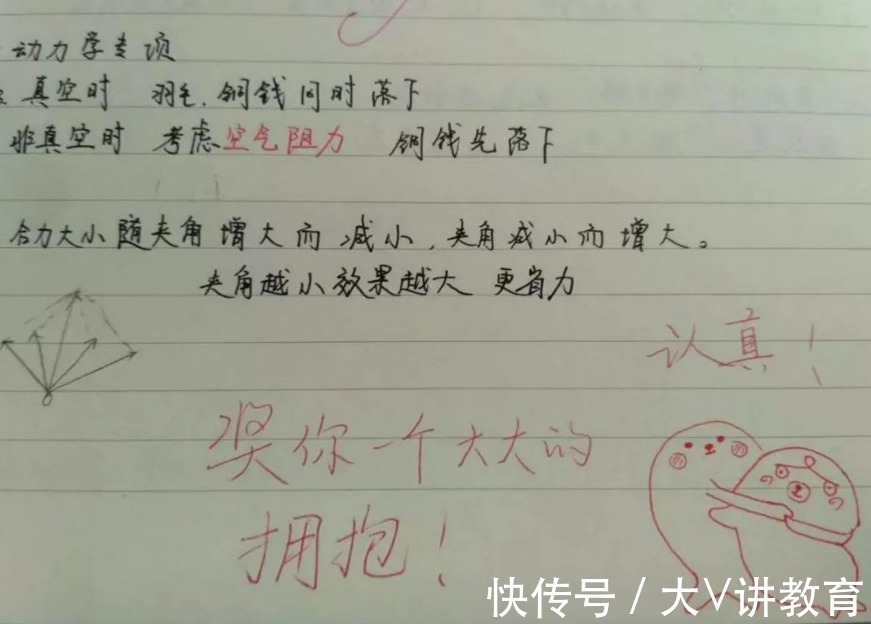 动力学专项
真空时 羽毛,铜钱同时落下
非真空时 考虑空气阻力 铜钱先落下
合力大小随夹角增大而减小,夹角减小而增大。
夹角越小效果越大 更省力
认真!
奖你一个大大的
拥抱!
快传号 / 大V讲教育